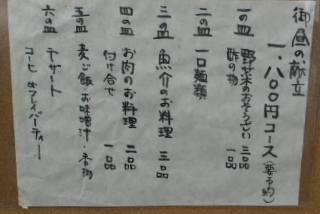 御昼の献立
一、八〇〇円コース(要予約)
一の皿 野菜のおそうざい 三品
酢の物 一品
二の皿 一口麺類
三の皿 魚介のお料理 三品
四の皿 お肉のお料理 二品
付け合せ 一品
五の皿 麦ご飯 お味噌汁・香の物
六の皿 デザート
コーヒー or ハーブティー